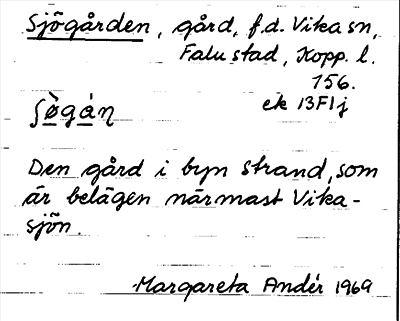 Sjögården, gård, f.d. Vika sn,
Falu stad, Kopp. l.
156.
ek 13F1j
ʃø̀gán
Den gård i byn Strand, som
är belägen närmast Vika-
sjön.
Margareta Andér 1969